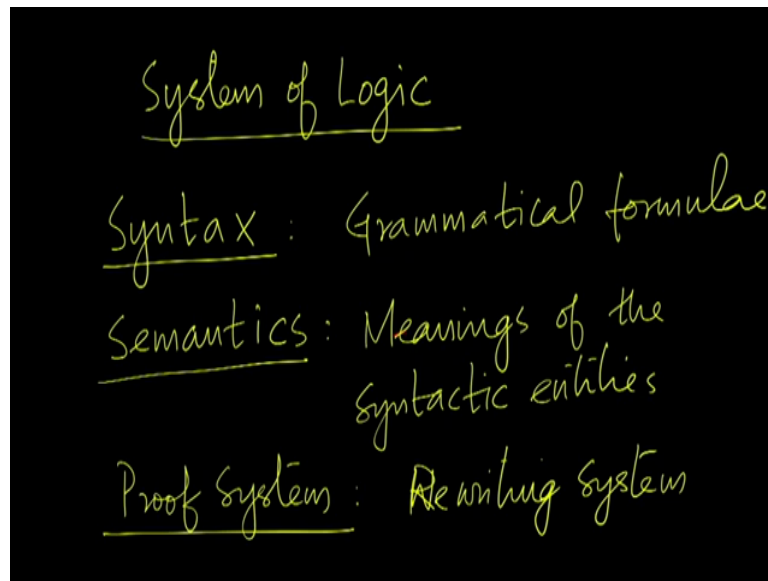 System of Logic
Syntax : Grammatical formulae
Semantics : Meanings of the
syntactic entities
Proof System : Rewriting System